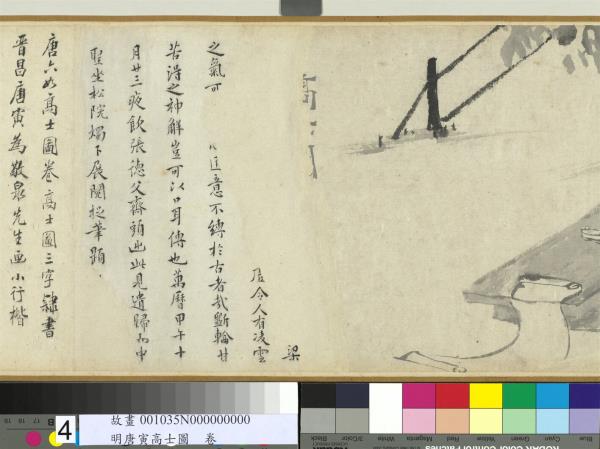 高士圖
梁
居令人有凌雲
之氣可
以匠意不縛於古者哉斲輪甘
苦得之神解豈可以口耳傳也萬曆甲午十
月廿三夜飲張德父齋頭出此見遺歸而中
聖坐松院燭下展閱捉筆題
唐六如高士圖卷高士圖三字隸書
晉昌唐寅為敬泉先生画小行楷
4
故畫 001035N000000000
明唐寅高士圖 卷
Blue
Cyan
Green
Yellow
Red
Magenta
White
3/Color
Black
KODAK Color Control Patches
B
17
18
19